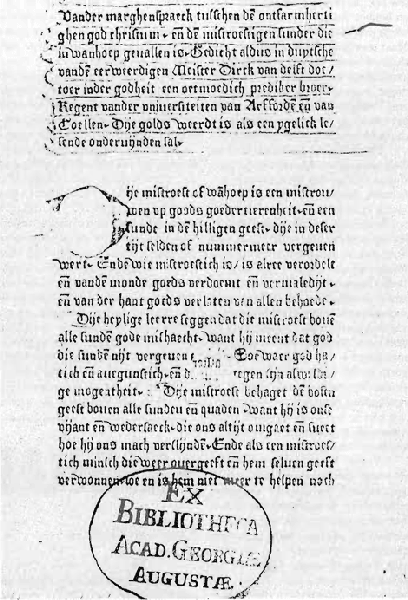 Vander marghenspraeck tusschen dē ontfarmherti
ghen god christum· eñ dē mistroestigen sunder die
in wanhoep geuallen is· Gedicht aldus in duytsche
vandē eerwierdigen Meister Dirck van delft doc/
toer inder godheit een oetmoedich prediker brœr
Regent vander vniuersiteten van Arfforde eñ van
Coellen· Dye golds weerdt is als een ygelick le/
sende ondervynden sal·
ije mistroest of wāhoep is een mistrou/
wen vp goods goedertierenheit· eñ een
sunde in dē hilligen geest· dye in deser
tijt selden of nummermeer vergeuen
wert· Ende wie mistroestich is/ is alree verordelt
eñ vandē monde gords verdoemt eñ vermaledijt·
eñ van der hant goeds verlaten van allen behoede·
Dije heylige leerre seggen dat die mistroest bouē
alle sundē gode mishaecht· want hij meent dat god
die sundē nijt vergeuen Soe waer god ha/
tich eñ auegunstich· eñ d egen sijn alweldi
ge mogentheit· Dije mistroest behaget dē bosen
geest bouen alle sunden eñ quaden· want hij is onse
vijant eñ wedersaeck· die ons altijt omgaet eñ suect
hoe hij ons mach verslyndē· Ende als een mistroes/
tich minsch die weer ouergeeft eñ hem seluen geeft
verwonnen· soe en is hem niet meer te helpen noch
EX
BIBLIOTHECA
ACAD. GEORGIÆ
AUGUSTÆ.